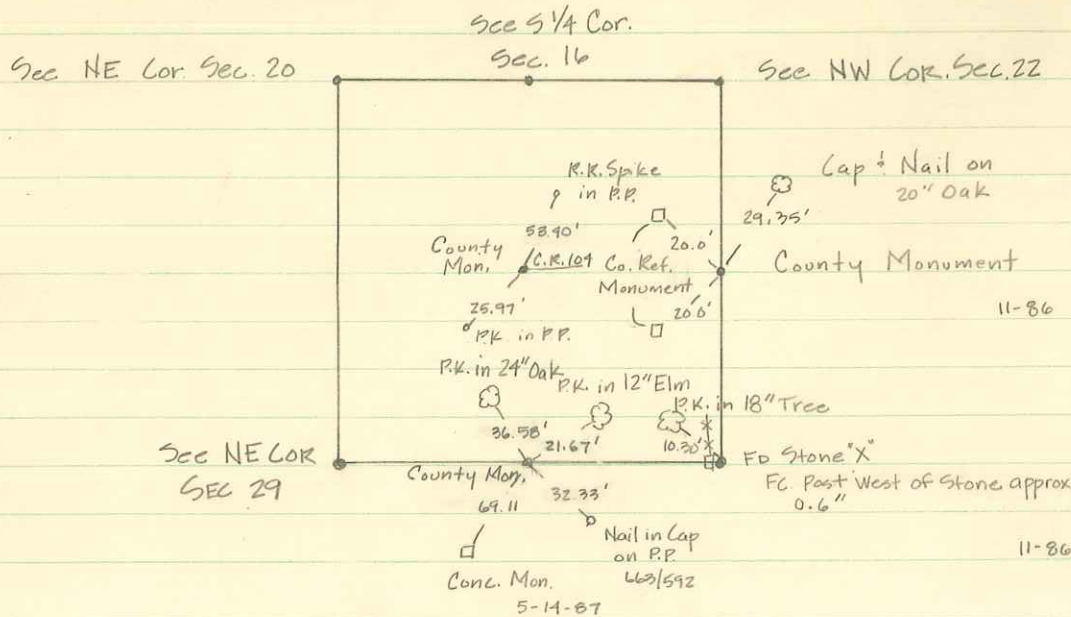 See S 1/4 Cor.
Sec. 16
See NE Cor. Sec. 20
See NW COR. Sec. 22
R.R. Spike
in P.P.
Cap & Nail on
20" Oak
29.35'
53.40'
20.0'
County
Mon.
C.R. 104
Co. Ref.
Monument
County Monument
25.97'
20.0'
11-86
P.K. in P.P.
P.K. in 24" Oak
P.K. in 12" Elm
P.K. in 18" Tree
36.58'
21.67'
10.30'
See NE COR
SEC 29
County Mon.
FD Stone "X"
Fc. Post West of Stone approx
0.6"
69.11
32.33'
Nail in Cap
on P.P.
663/592
11-86
Conc. Mon.
5-14-87